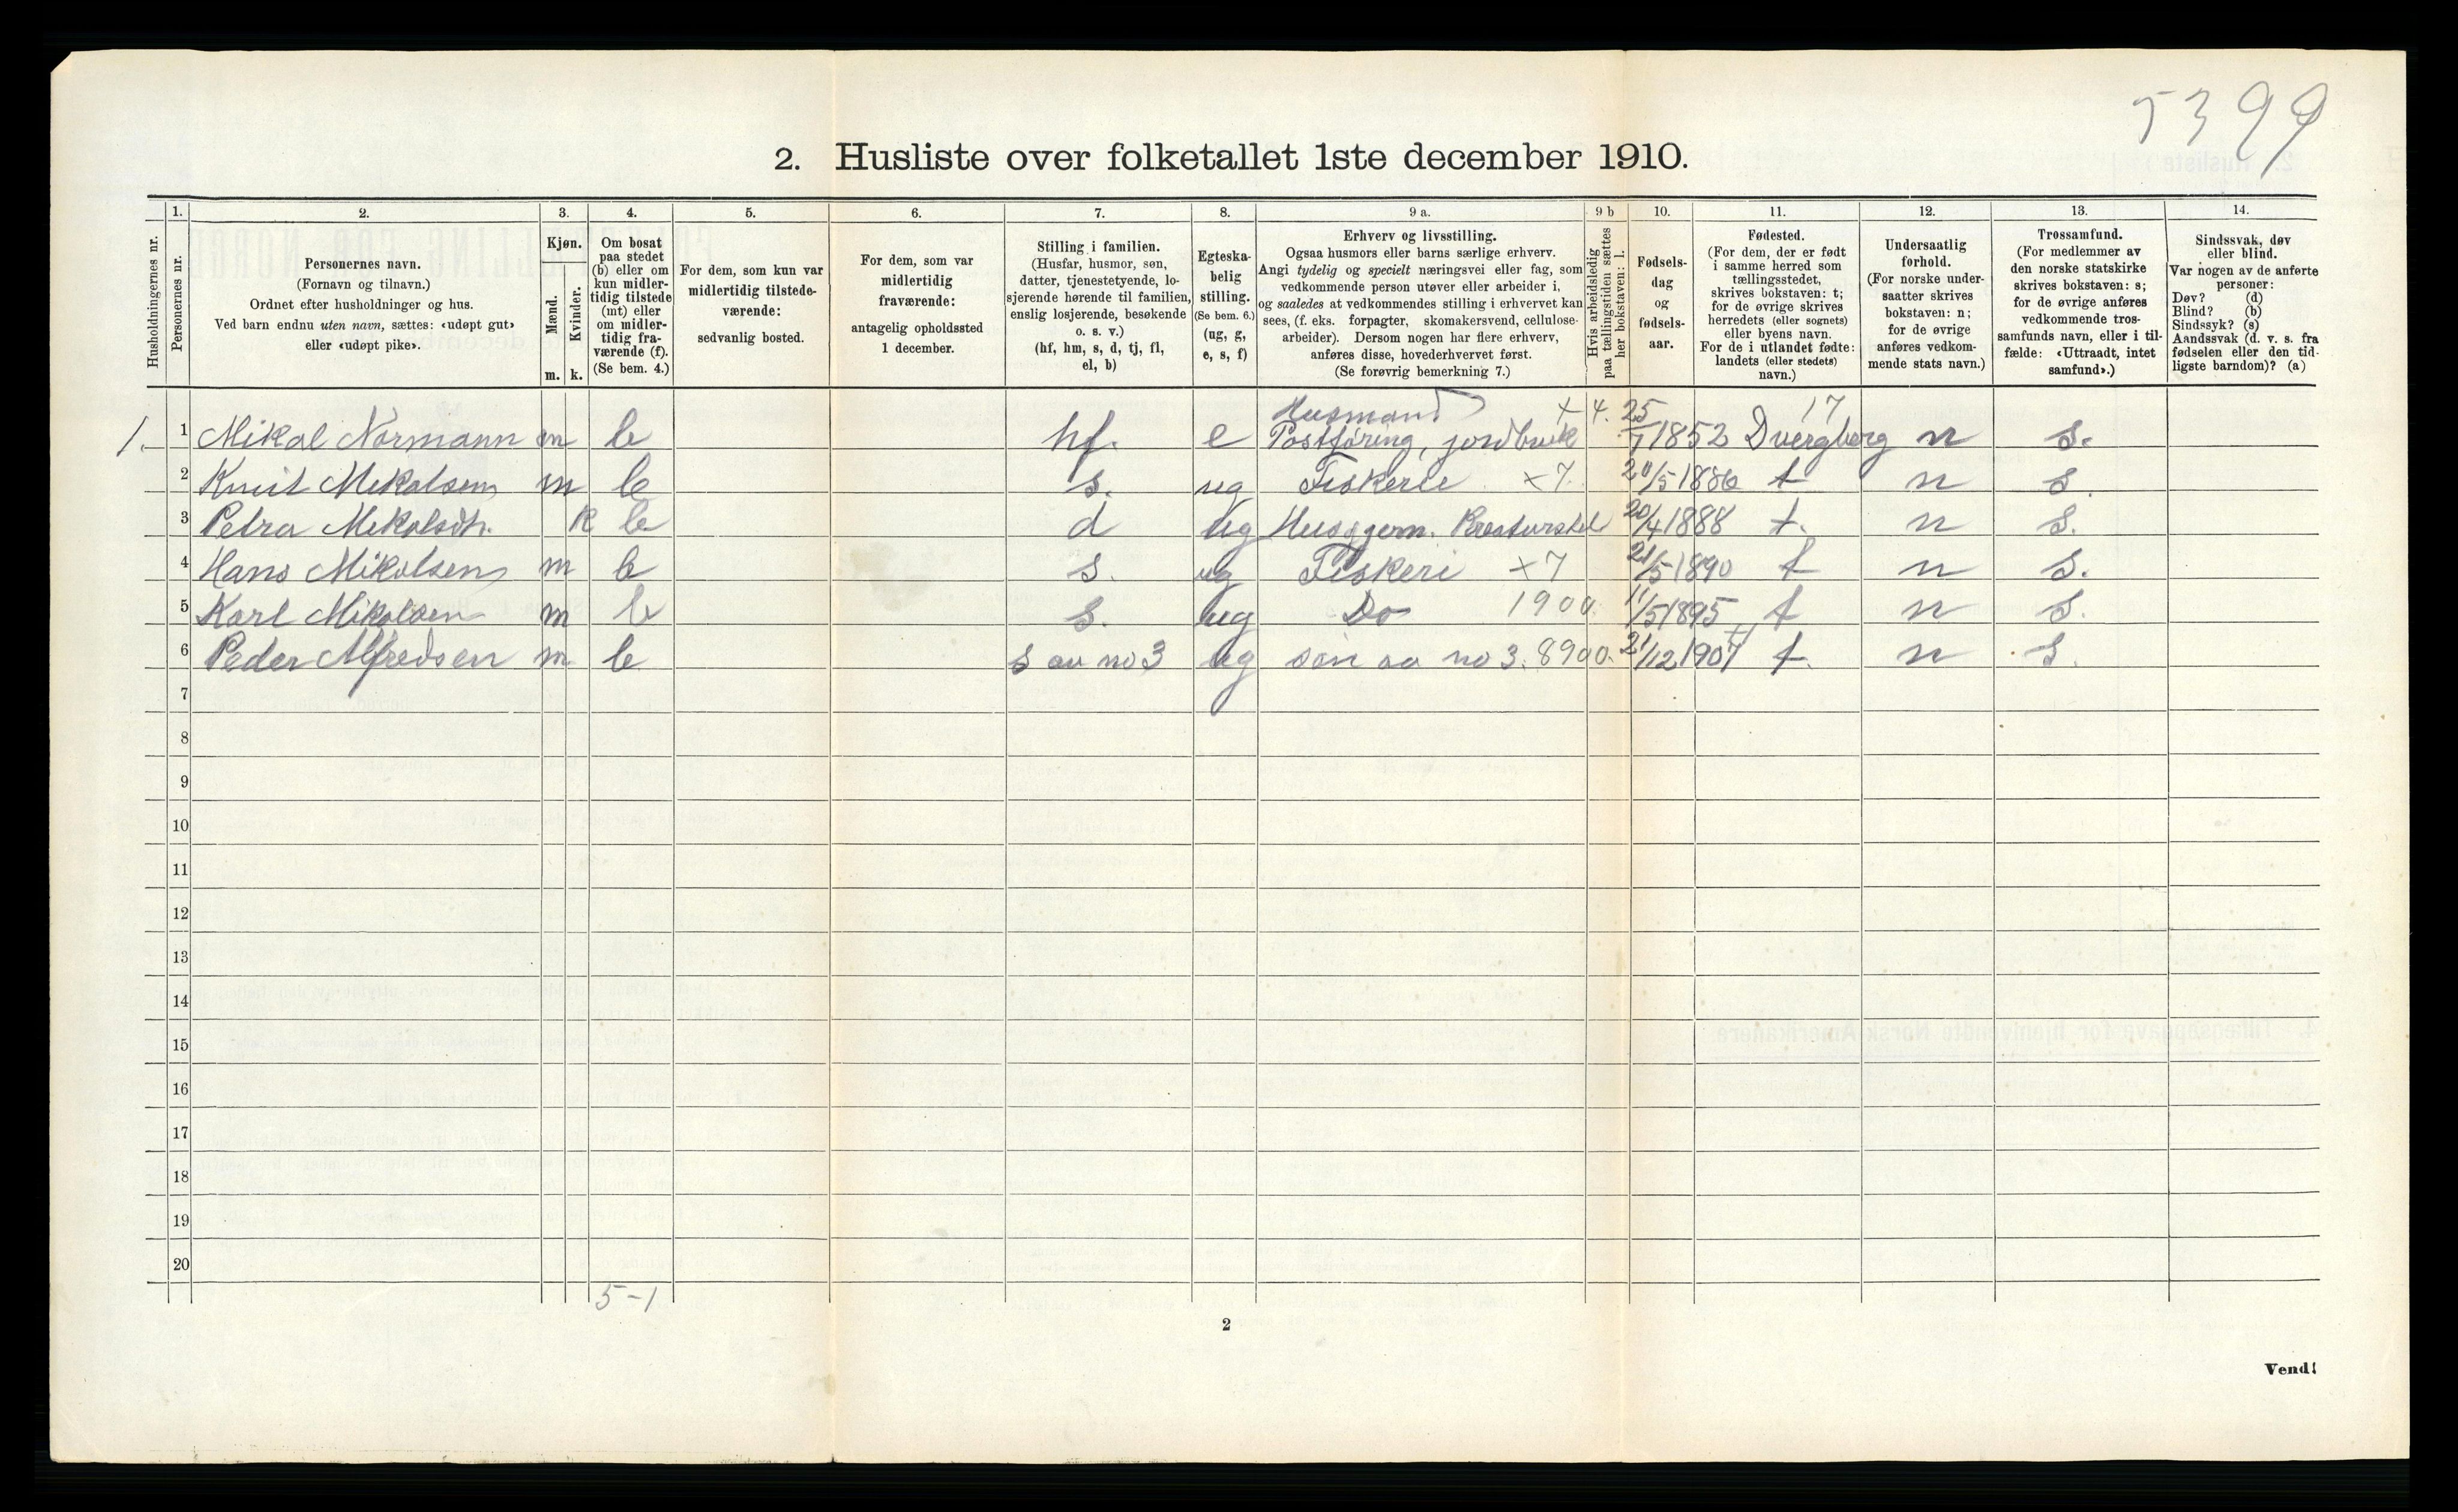 5399
2. Husliste over folketallet 1ste december 1910.
Husholdningernes nr.
1.
Personernes nr.
2.
Personernes navn.
(Fornavn og tilnavn.)
Ordnet efter husholdninger og hus.
Ved barn endnu uten navn, sættes: «udøpt gut»
eller «udøpt pike».
3.
Kjøn.
Mænd.
Kvinder.
m. k.
4.
Om bosat
paa stedet
(b) eller om
kun midler-
tidig tilstede
(mt) eller
om midler-
tidig fra-
værende (f).
(Se bem. 4.)
5.
For dem, som kun var
midlertidig tilstede-
værende:
sedvanlig bosted.
6.
For dem, som var
midlertidig
fraværende:
antagelig opholdssted
1 december.
7.
Stilling i familien.
(Husfar, husmor, søn,
datter, tjenestetyende, lo-
sjerende hørende til familien,
enslig losjerende, besøkende
o. s. v.)
(hf, hm, s, d, tj, fl,
el, b)
8.
Egteska-
belig
stilling.
(Se bem. 6.)
(ug, g,
e, s, f)
9 a.
Erhverv og livsstilling.
Ogsaa husmors eller barns særlige erhverv.
Angi tydelig og specielt næringsvei eller fag, som
vedkommende person utøver eller arbeider i,
og saaledes at vedkommendes stilling i erhvervet kan
sees, (f. eks. forpagter, skomakersvend, cellulose-
arbeider). Dersom nogen har flere erhverv,
anføres disse, hovederhvervet først.
(Se forøvrig bemerkning 7.)
9 b
Hvis arbeidsledig
paa tællingstiden sættes
her bokstaven: l.
10.
Fødsels-
dag
og
fødsels-
aar.
11.
Fødested.
(For dem, der er født
i samme herred som
tællingsstedet,
skrives bokstaven: t;
for de øvrige skrives
herredets (eller sognets)
eller byens navn.
For de i utlandet fødte:
landets (eller stedets)
navn.)
12.
Undersaatlig
forhold.
(For norske under-
saatter skrives
bokstaven: n;
for de øvrige
anføres vedkom-
mende stats navn.)
13.
Trossamfund.
(For medlemmer av
den norske statskirke
skrives bokstaven: s;
for de øvrige anføres
vedkommende tros-
samfunds navn, eller i til-
fælde: «Uttraadt, intet
samfund».)
14.
Sindssvak, døv
eller blind.
Var nogen av de anførte
personer:
Døv? (d)
Blind? (b)
Sindssyk? (s)
Aandssvak (d. v. s. fra
fødselen eller den tid-
ligste barndom)? (a)
Husmand x 4. 17
1. 1 Mikal Normann m b hf. e Postføring, jordbruk 25/7 1852 Dvergberg n s.
2 Knut Mikalsen m b s. ug Fiskerie x 7. 20/5 1886 t n s.
3 Petra Mikalsdtr. k b d ug Husgjern. Kreaturstel 20/4 1888 t. n s.
4 Hans Mikalsen m b s. ug Fiskeri x 7 21/5 1890 t n s.
5 Karl Mikalsen m b s. ug Do 1900. 11/5 1895 t n s.
6 Peder Alfredsen m b s av no 3 ug søn av no 3. 8900. 21/12 1907 t. n s.
7
8
9
10
11
12
13
14
15
16
17
18
19
20
5-1
2
Vend!